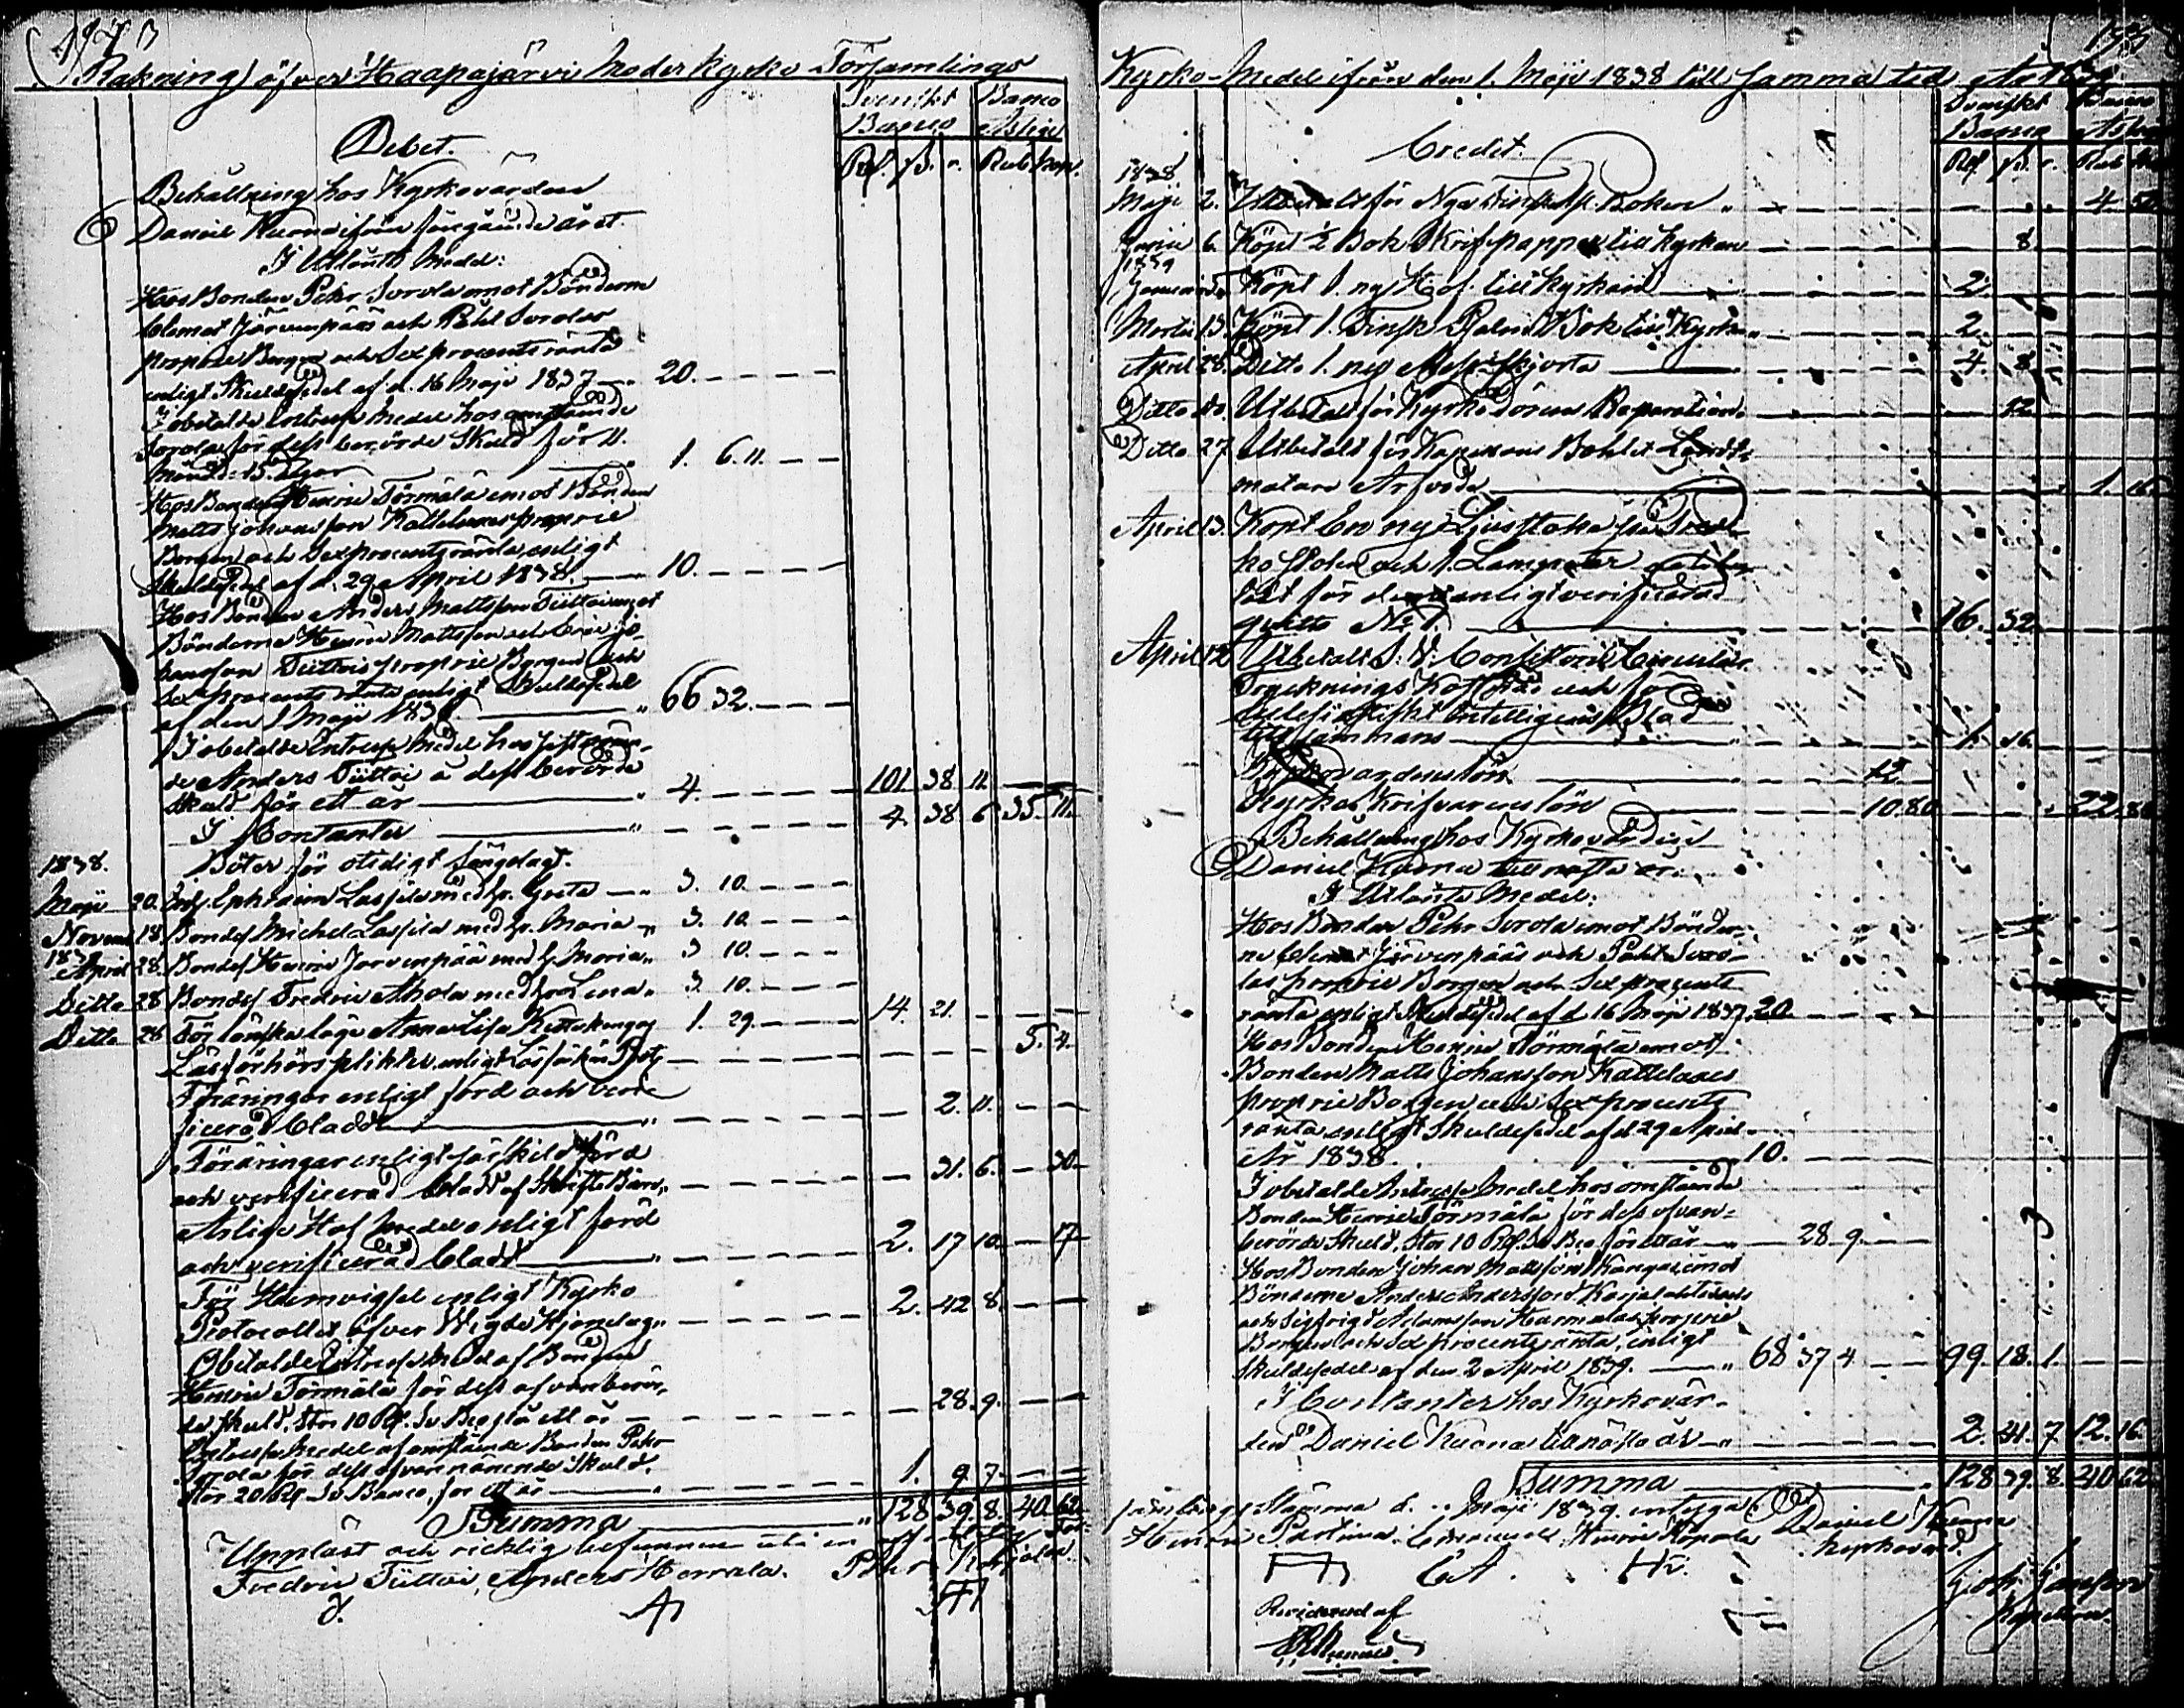 Räkning öfver Haapajärvi Moderkyrko Församlings
Svenskt Banco
Banco Assign
Debet.
Rd. ß. r. Rub. kop.
Behållning hos Kyrkovärden
Daniel Kuona ifrån föregående året.
I Utlånte Medel:
Hos Bonden Pehr Sorola emot Bönderne
Clemet Järvenpää och Påhl Sorolas
proprie Borgen och Sex procents ränta
enligt Skuldsedel af d. 16 Maji 1837 — 20.
Obetalde Intresse Medel hos omstående
Sorola för dess berörde Skuld för 11.
Månad: 15. Dagar — 1. 6. 11.
Hos Bonden Henric Törmälä emot Bonden
Matts Johansson Kattelaus proprie
Borgen och Sex procents ränta, enligt
Skuldsedel af d. 29 April 1838. — 10.
Hos Bonden Anders Mattsson Tiittoi emot
Bönderne Henric Mattsson och Eric Jo-
hansson Tiittois proprie Borgen och
Sex procents ränta enligt Skuldsedel
af den 1 Maji 183 — 66 32.
Obetalde Intresse Medel hos sistnämn-
de Anders Tiittoi å dess berörde
Skuld för ett år — 4. 101 38 11
I Contanter — 4. 38 6. 35. 11.
1838. Böter för otidigt Sängelag.
Maji 20. Ephraim Lassila med h. Greta — 3. 10.
Novemb 18. Bondes. Michel Lassila med h. Maria — 3. 10.
1839
April 28. Bondes. Henric Jarvenpää med h. Maria — 3 10.
Ditto 28 Bondes. Fredric Ahola med h. Lena — 3. 10.
Ditto 28 För lönska läge Anna Lisa Kettukangas 1. 29. 14. 21.
Läsförhörs plikter, enligt Läsförhörs Prot. 5. 4.
Föräringar enligt förd och veri-
ficerad Cladd — 2. 11.
Föräringar enligt särskild förd
och verificerad Cladd af Skrifte Barn — 31. 6. 30.
Årlige Håf Medel enligt förd
och verificerad Cladd — 2. 17 10. 17
För Hemvigsel enligt Kyrko
Protocollet öfver Wigde Hjonelag — 2. 42 8
Obetalde Intresse Medel af Bonden
Henric Törmälä för dess ofvanberör-
de skuld, Stor 10 Rd. Sv Bco för ett år — 28. 9.
Intresse Medel af omstående Bonden Pehr
Sorola för dess ofvannämnde Skuld,
Stor 20 Rd. Sv Banco, för ett år — 1. 9 7
Summa — 128 39. 8. 40. 62
Uppläst och ricktig befunnen uti en
Fredric Tiittoi, Anders Hemmila. Pehr
Kyrko-Medel ifrån den 1. Maji 1838 till samma tid År 1839
Svenskt Banco
Banco Assign
Credit.
Rd. ß. r. Rub
1838
Maji 2. 4. 50
Junii 6. Köpt ½ Bok Skrifpapper till kyrkan — 8.
1839
Januarii Köpt 1. ny Håf till kyrkan — 2.
Martii 13. Köpt 1. Finsk Psalm Bok till Kyrkan — 2.
April 28. Ditto 1. ny Mess-skjorta — 4. 8
Ditto 20. Utbetalt för Kyrkodörens Reparation — 12.
Ditto 27 Utbetalt för Kapellans Bohlet Landt-
mätare Arfvode — 1. 16.
April 13. Köpt En ny Ljusstake för Predi-
kostolen och 1. Lamp
ldt för dem enligt verificerad
quitto No 1. — 16. 32
April 12 Utbetalt S. V. Consistorii Circulär
Trycknings Kostnad och för
Eccclesiastiskt Intelligens Blad
tillsammans — 1. 16.
Kyrkovardens lön — 12.
Kyrkoskrifvarens lön — 10. 80 22. 80
Behållning hos Kyrkovärden
Daniel Kuona till nästa år.
I Utlånte Medel:
Hos Bonden Pehr Sorola emot Bönder-
ne Clemet Järvenpääs och Påhl Soro-
las proprie Borgen och Sex procents
ränta enligt Skuldsedel af d 16 Maji 1837. 20
Hos Bonden Henric Törmälä emot
Bonden Matts Johansson Kattelaus
proprie Borgen och Sex procents
ränta enligt Skuldsedel af d 29 April
År 1838. — 10.
Obetalde Intresse Medel hos omstående
Bonden Henric Törmälä för dess ofvan-
berörde Skuld, Stor 10 Rd. Sv Bco för ett år — 28. 9.
Hos Bonden Johan Mattsson Kangas emot
Bönderne Anders Andersson Karjalahti
och Sigfrid Adamsson Harmalas proprie
Borgen och Sex procents ränta, enligt
Skuldsedel af den 2 April 1839. — 68 37 4 99. 18. 1.
I Contanter hos Kyrkovär-
den Daniel Kuona till nästa år — 2. 21. 7 12. 16.
Summa — 128 39. 8. 40 62
Stämma d. Maji 1839. intyga
Henric Daniel Kuona
Kyrkovärd.
Reviderad af